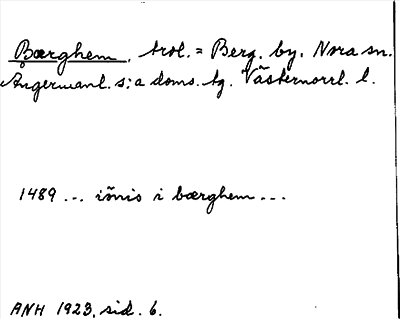 Bærghem, trol. = Berg. by. Nora sn.
Ångermanl. s:a doms. tg. Västernorrl. l.
1489 ... i bærghem ...
ANH 1923, sid. 6.